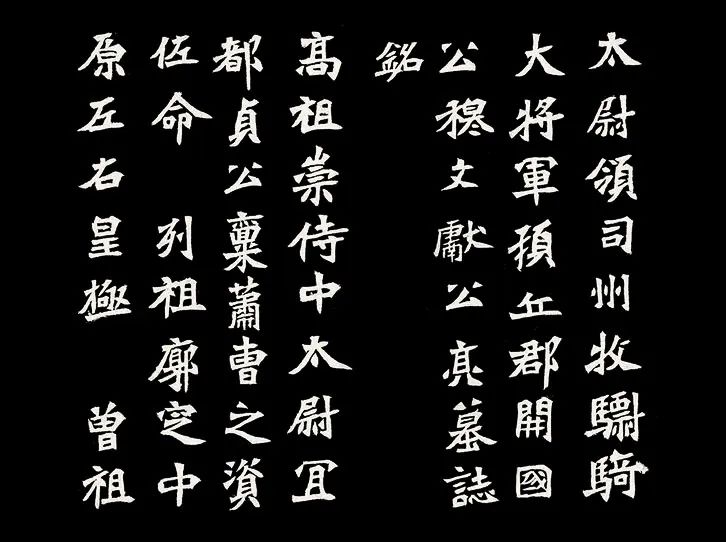 太尉領司州牧驃騎
大將軍頓丘郡開國
公穆文獻公亮墓誌
銘
髙祖崇侍中太尉冝
都貞公稟蕭曹之資
佐命 列祖廓定中
原左右皇極 曾祖